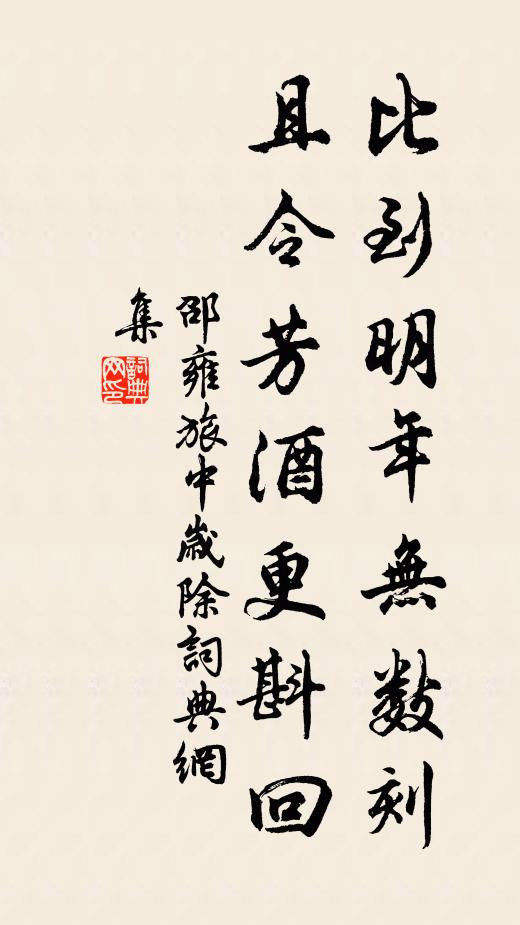 比到明年無數刻
且令芳酒更斟回
邵雍旅中歲除詞典網
集
詞典網印